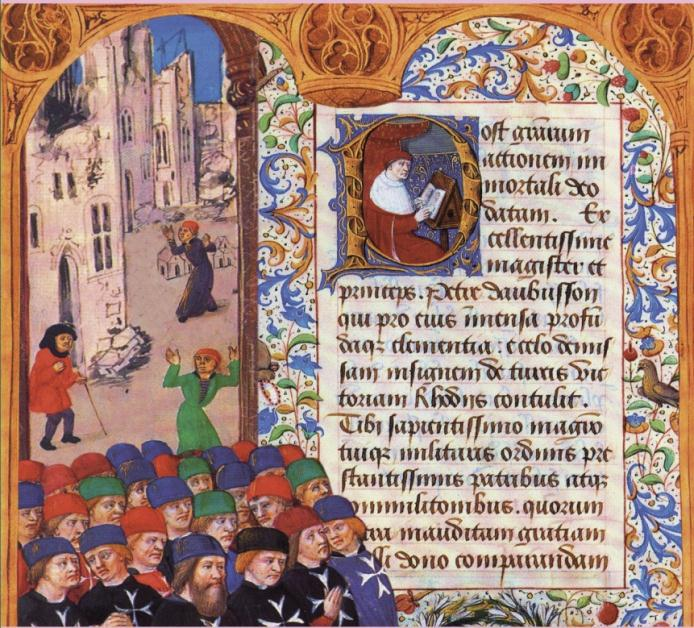 Post gratiarum
actionem im
mortali deo
datam. Ex
cellentissime
magister et
princeps. Petre daubusson
qui pro eius īmensa profū
daqꝫ clementia: e celo demis
sam insignem de turcis vic
toriam Rhodijs contulit.
Tibi sapientissimo magno
tuiqꝫ militaris ordinis pre
stantissimis patribus atqꝫ
ommilitonibus. quorum
inauditam gratiam
dono comparandam